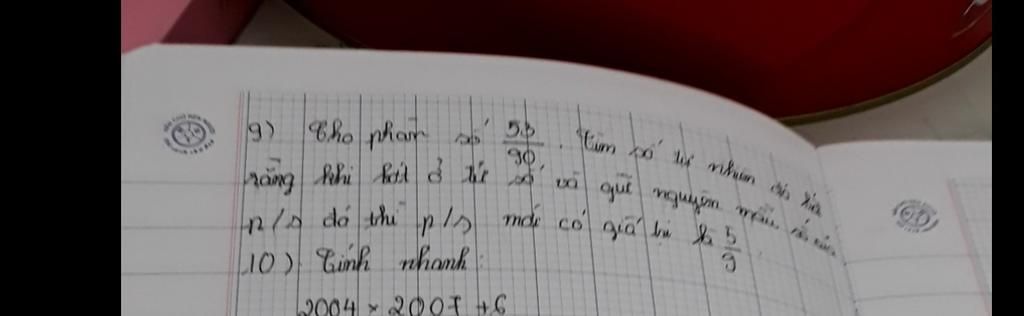 9) Cho phân số 53/90. Tìm số tự nhiên
rằng khi bớt ở tử số và giữ nguyên mẫu số của
p/s đó thì p/s mới có giá trị là 5/9
10) Tính nhanh:
2004 × 2007 + 6